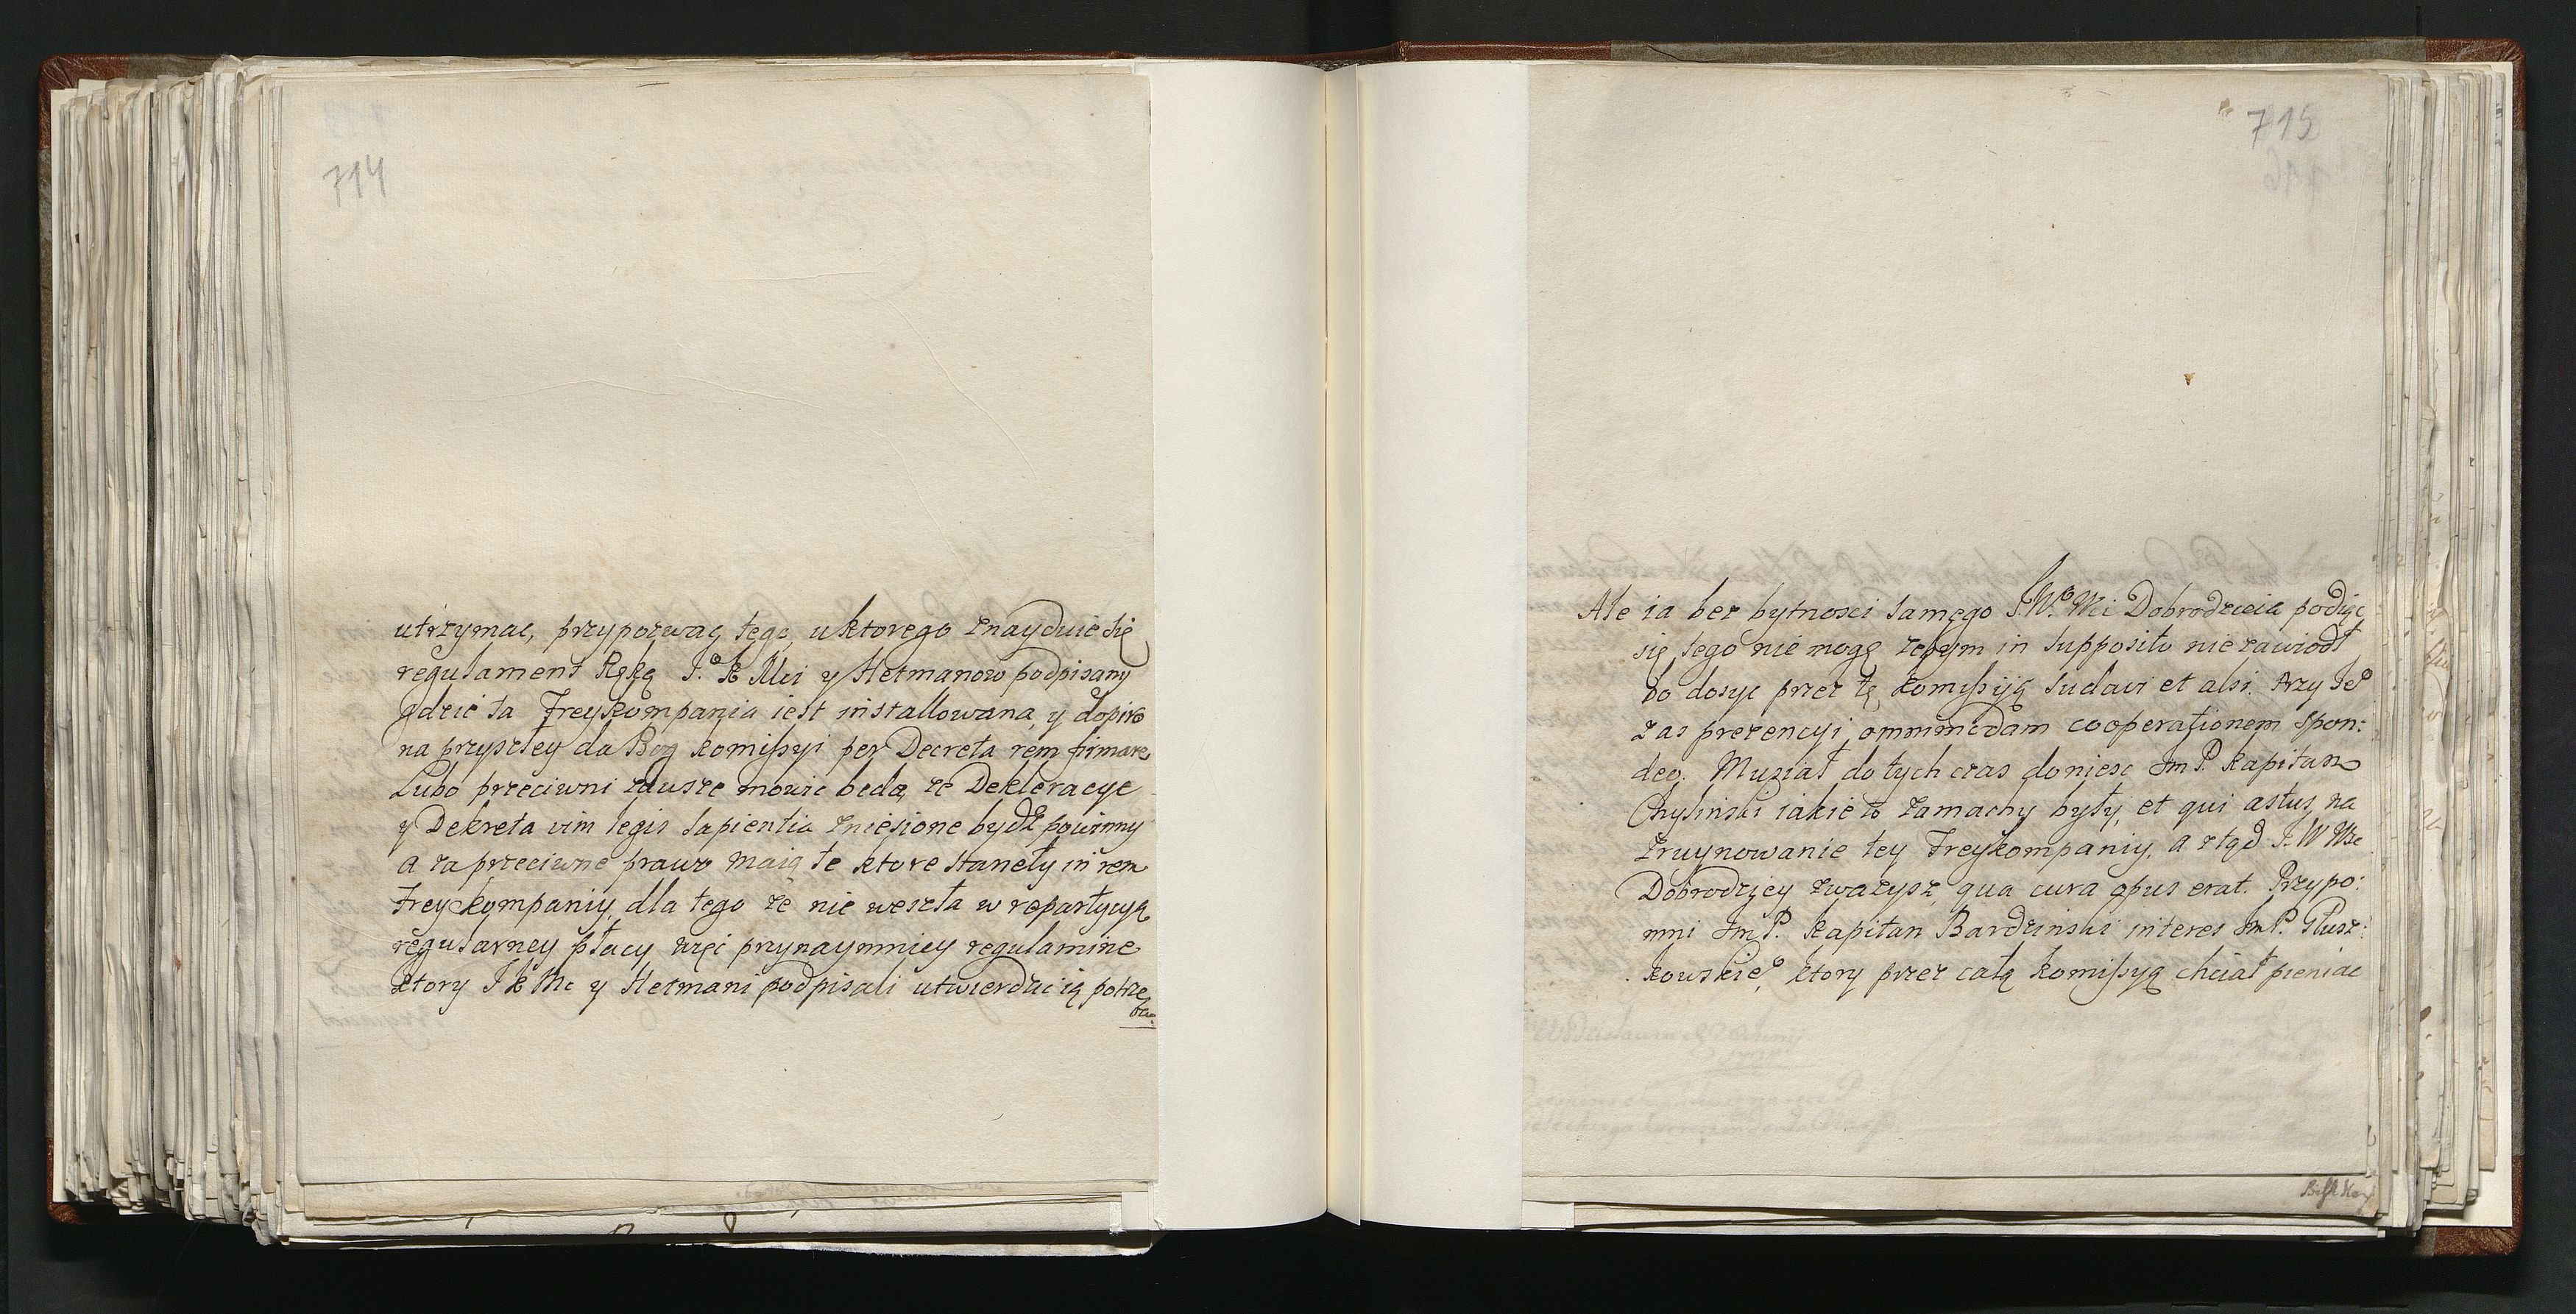 714
utrzymac, przypozwac tego, u ktorego znayduie się
regulament Ręką J.º K Mci y Hetmanow podpisany
gdzie ta Freykompania iest installowana, y dopiro
na przyszłey da Bog komissyi per Decreta rem firmare
Lubo przeciwni zawsze mowic beda, ze Dekleracye
y Dekreta vim legis sapientia zniesione bydź powinny
a za przeciwne prawo maią te ktore stanęły in rem
Freykompaniy, dla tego ze nie weszła w repartycyą
regularney płacy, więc przynaymniey regulamine
ktory J K Mc y Hetmani podpisali utwierdzic ią potrze
ba.
715
Ale ia bez bytnosci samego J.W.º Mci Dobrodzieia podiąc
się tego nie mogę zebym in supposito nie zawiodł
bo dosyc przez tę komissyią sudavi et alsi. Przy Jeº
zas prezencyi, omnimodam cooperationem spon:
deo. Muział do tych czas doniesc Jm P. Kapitan
Chylinski iakie to zamachy były, et qui astus na
zruynowanie tey Freykompaniy, a ztąd J. W Wc
Dobrodziey zwazysz, qua cura opus erat. Przypo:
mni Jm P. Kapitan Bardzinski interes Jm P. Głusz:
kowskieº, ktory przez całą komissyą chciał pieniac